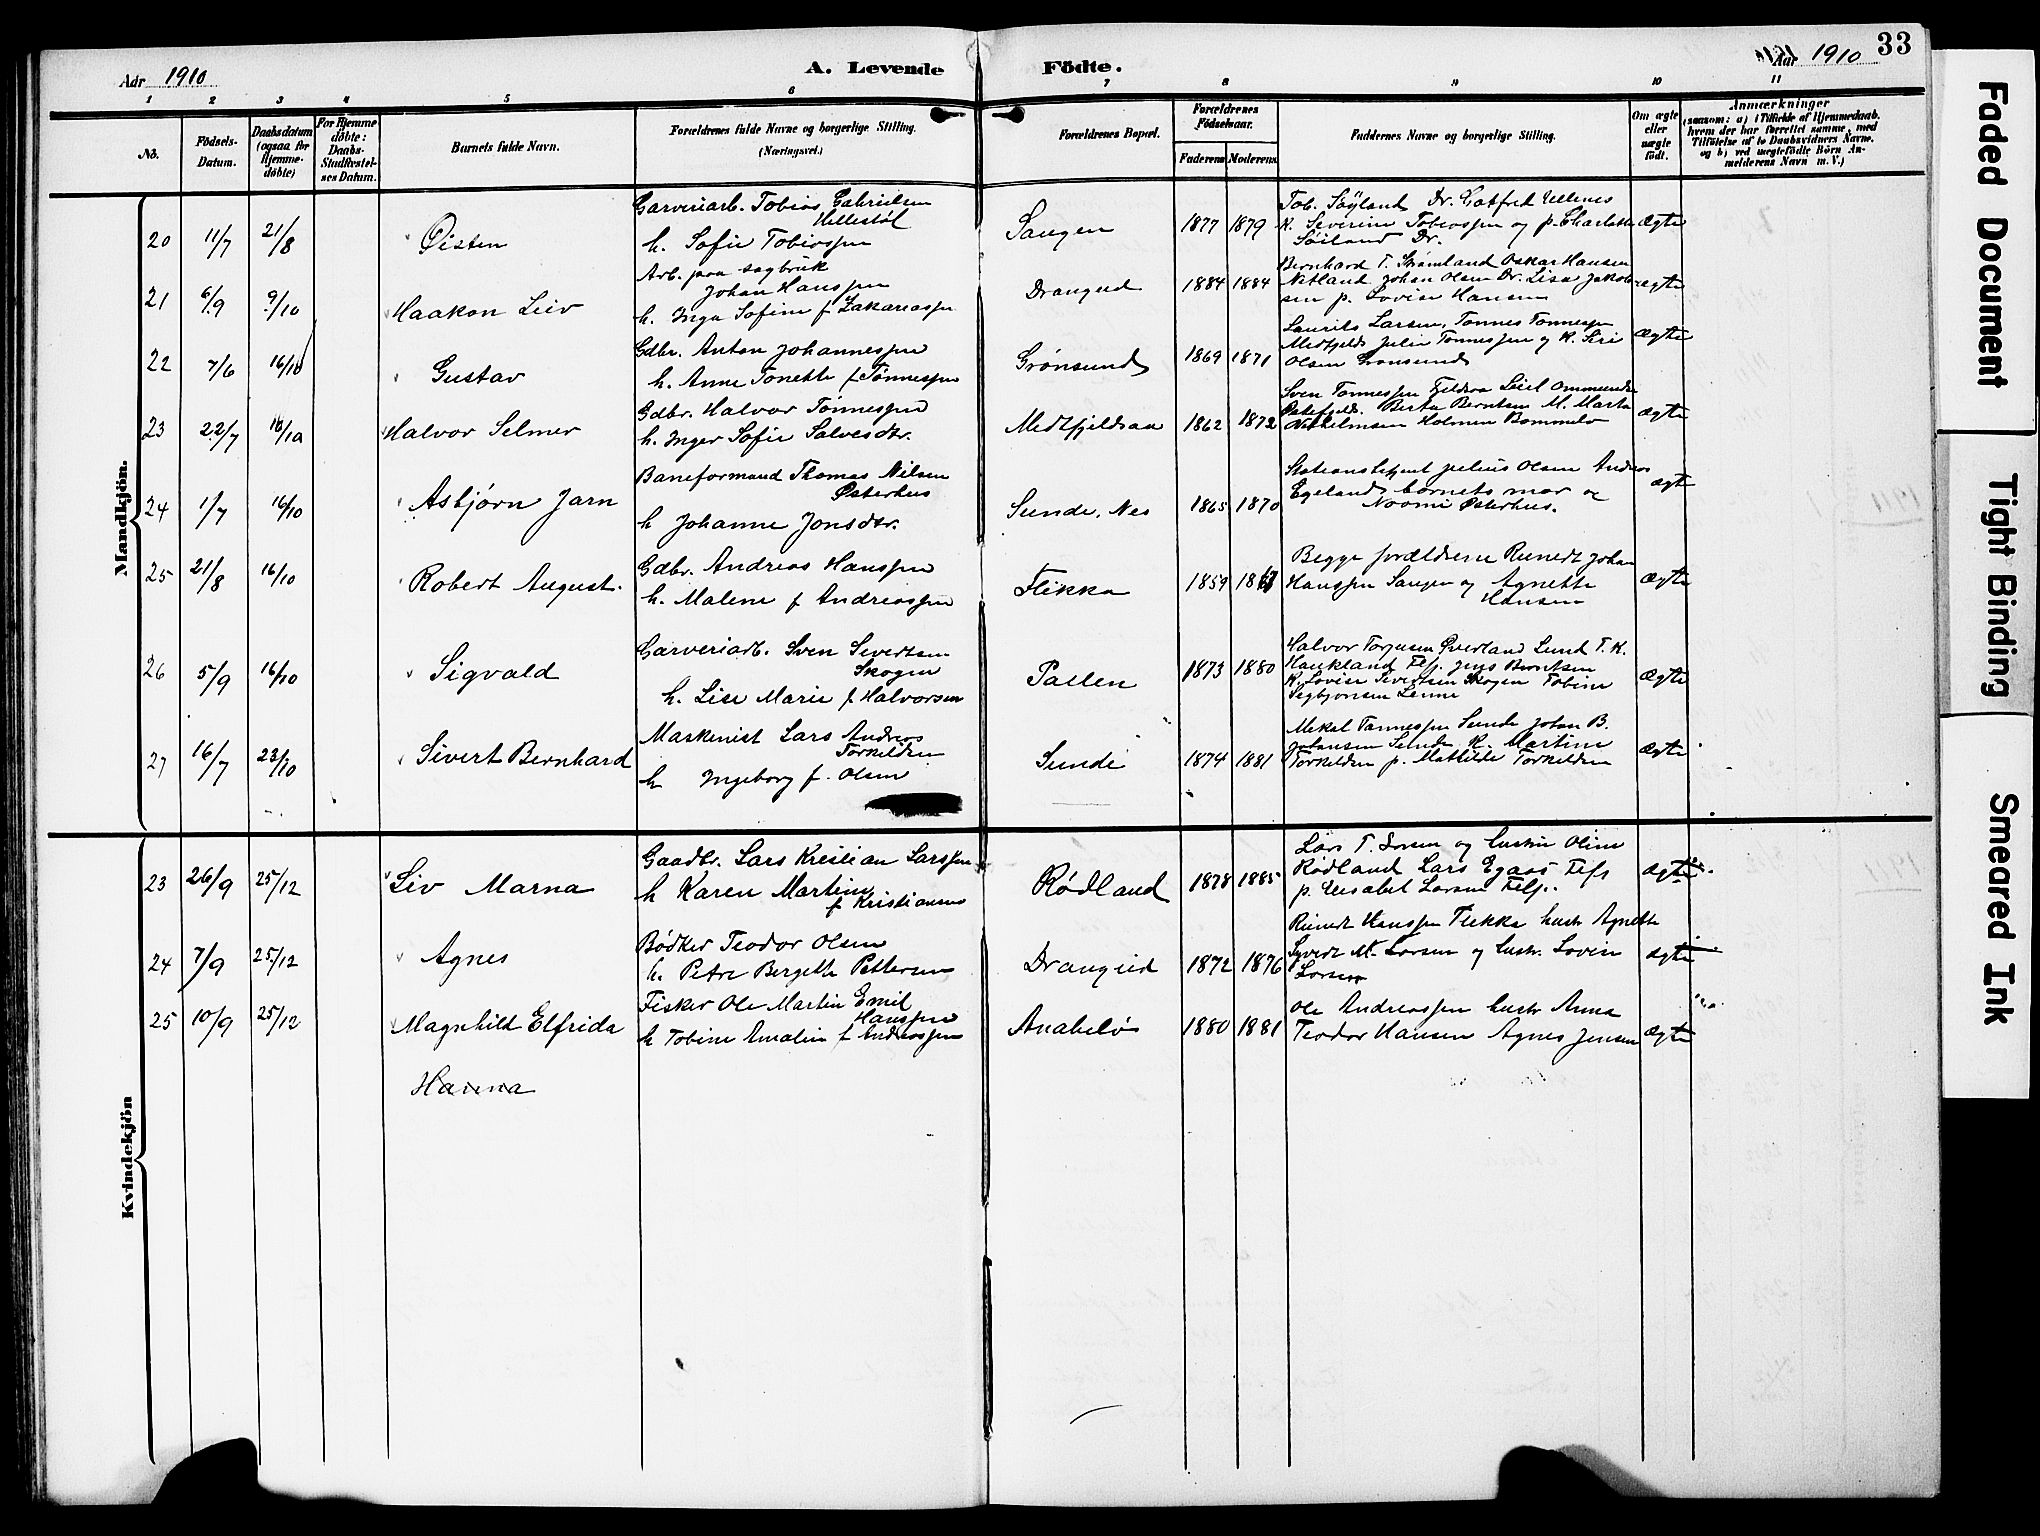 33
Aar 1910
A. Levende
Födte.
Aar 1910
1 2 3 4 5 6 7 8 9 10 11
No.
Födsels-
Datum.
Daabsdatum
(ogsaa for
Hjemme-
döbte)
For Hjemme
döbte:
Daabs-
Stadfæstel-
ses Datum.
Barnets fulde Navn.
Forældrenes fulde Navne og borgerlige Stilling.
(Næringsvei.)
Forældrenes Bopæl.
Forældrenes
Födselsaar.
Faderens Moderens
Faddernes Navne og borgerlige Stilling.
Om ægte
eller
uægte
født.
Anmærkninger
(saasom: a) i Tilfælde af Hjemmedaab,
hvem der har forrettet samme, med
Tilföielse af to Daabsvidners Navne,
og b) ved uægtefödte Börn An-
melderens Navn m. V.)
Mandkjön.
20 11/7 21/8 Øisten
Garveriarb. Tobias Gabrielsen
Hellestöl
h. Sofie Tobiassen
Saugen 1877 1879
Tob. Söyland Dr. Gotfred
K. Severine Tobiassen og p. Charlotte
Söiland Dr.
ægte
21 6/9 9/10 Haakon Leiv
Arb. paa sagbruk
Johan Hanssen
h. Inga Sofine f Zakariassen
Drangeid 1884 1884
Bernhard T. Strömland Oskar Hansen
Netland Johan Olsen Dr. Lisa Jakob-
sen p. Lovise Hansen
ægte
22 7/6 16/10 Gustav
Gdbr. Anton Johannessen
h. Anne Tonette f Tønnessen
Grönsund 1869 1871
Laurits Larsen, Tonnes Tonnessen
Medfjeld Julie Tonnessen og K. Siri
Olsen Gronsund
ægte
23 22/7 16/10 Halvor Selmer
Gdbr. Halvor Tönnessen
h. Inger Sofie Salvesdtr.
Medfjeldsaa 1862 1872
Sven Tonnessen Fjeldsaa
Berta Berntsen M. Marta
Vilhelmsen Holmen
ægte
24 1/7 16/10 Asbjørn Jarn
Baneformand Thomas Nilsen
Østerhus
h Johanne Jonsdtr.
Sunde, Nes 1865 1870
Stationsbetjent Julius Olsen Andreas
Egeland barnets mor og
Noomi Østerhus.
ægte
25 21/8 16/10 Robert August.
Gdbr. Andreas Hanssen
h. Malene f Andreassen
Flikka 1859
Begge forældrene Reinert Johan
Hanssen Saugen og Agnette
Hansen
ægte
26 5/9 16/10 Sigvald
Garveriarb. Sven Severtsen
Skogen
h. Lise Marie f Halvorsen
Paelen 1873 1880
Halvor Torjusen Øverland Lund T. K.
Haukland Flf. Jens Berntsen
K. Lovise Severtsen Skogen Tobine
Segbjornsen Lenne
ægte
27 16/7 23/10 Sivert Bernhard
Maskinist Lars Andreas
Torkildsen
h Ingeborg f. Olsen
Sunde 1874 1881
Mikal Tannessen Sunde Johan B.
Johansen Sunde K. Martine
Torkildsen p. Mathilde Torkildsen
ægte
Kvindekjön
23 26/9 25/12 Liv Marna
Gaadbr. Lars Kristian Larssen
h Karen Martine
f Kristiansen
Rødland 1878 1885
Lars T. Larsen og hustru Oline
Rødland Lars Egaas Flf
p. Elisabet Larsen Flf.
ægte
24 7/9 25/12 Agnes
Bödker Teodor Olsen
h. Petra Bergette Pettersen
Drangeid 1872 1876
Reinert Hanssen Flikka hustr Agnette
Syvert M. Larsen og hustr. Lovise
Larsen
ægte
25 10/9 25/12 Magnhild Elfrida
Hanna
Fisker Ole Martin Emil
Hanssen
h Tobine Amalie f Andreassen
Anabelø 1880 1881
Ole Andreassen hustr Anna
Teodor Hansen Agnes Jensen
ægte
Faded Document
Tight Binding
Smeared Ink